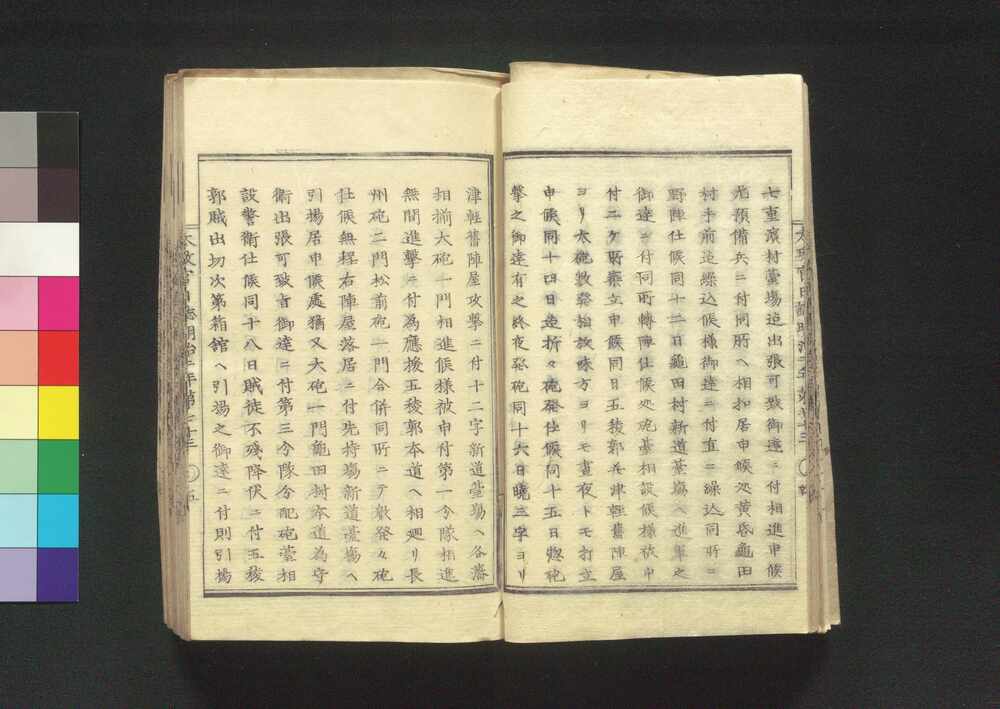 七重濱村臺場迄出張可致御達ニ付相進申候
尤預備兵ニ付同所ヘ相扣居申候処黄昏龜田
村手前迄繰込候様御達ニ付直ニ繰込同所ニ
野陣仕候同十二日龜田村新道臺場ヘ進軍之
御達ニ付同所轉陣仕候処砲臺相設候様被申
付二ケ所築立申候同日五稜郭并津輕舊陣屋
ヨリ大砲数發始敵味方ヨリモ晝夜トモ打立
申候同十四日迄折々砲發仕候同十五日惣砲
撃之御達有之終夜発砲同十六日曉三字ヨリ
津輕舊陣屋攻撃ニ付十二字新道臺場ヘ各藩
相揃大砲一門相進候様被申付第一分隊相進
無間進撃ニ付為應援五稜郭本道ヘ相廻リ長
州砲二門松前砲一門合併同所ニテ数發々砲
仕候無程右陣屋落居ニ付先持場新道臺場ヘ
引揚居申候處猶又大砲一門龜田村本道為守
衛出張可致旨御達ニ付第三分隊分配砲臺相
設警衛仕候同十八日賊徒不残降伏ニ付五稜
郭賊出切次第箱舘ヘ引揚之御達ニ付則引揚
太政官日誌明治二年第七十三
五